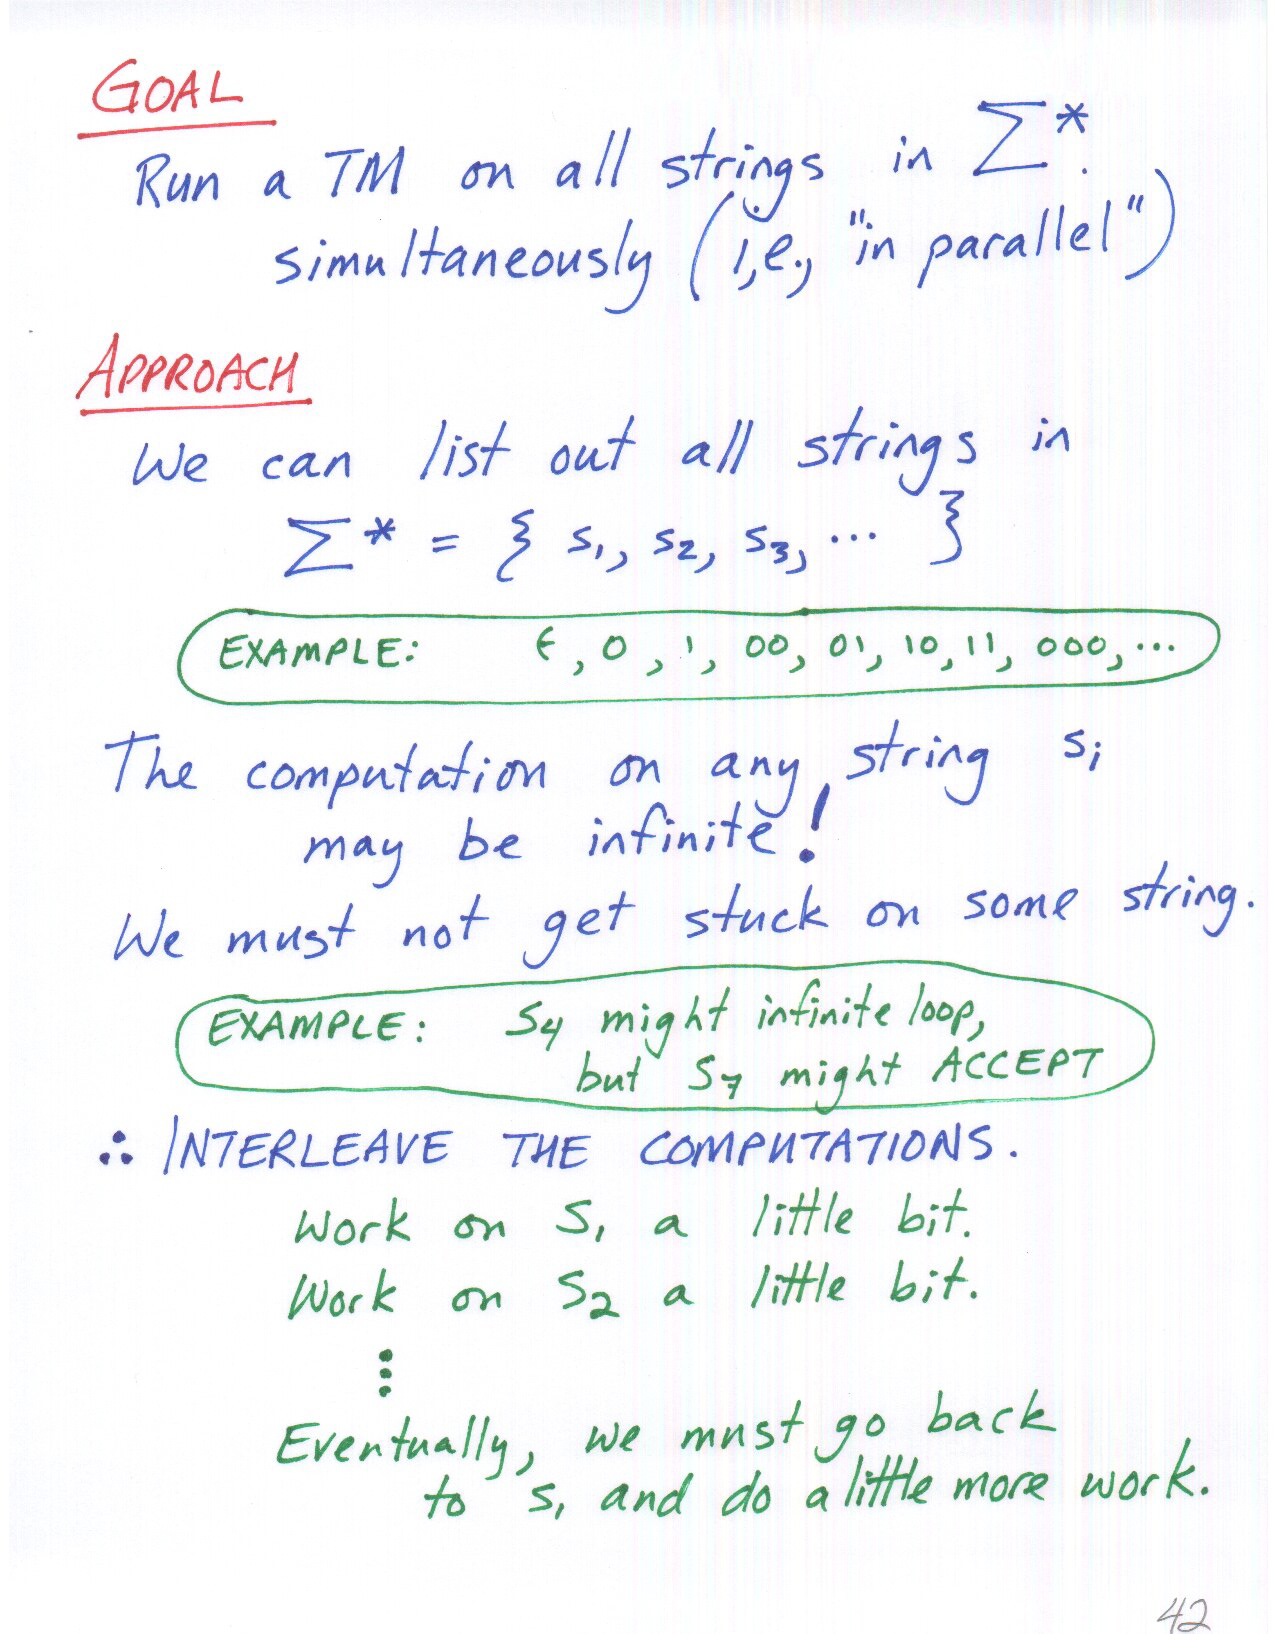 GOAL
Run a TM on all strings in Σ*.
simultaneously (i.e., "in parallel")
APPROACH
We can list out all strings in
Σ* = { s₁, s₂, s₃, ... }
EXAMPLE: ϵ, 0, 1, 00, 01, 10, 11, 000, ...
The computation on any string sᵢ
may be infinite!
We must not get stuck on some string.
EXAMPLE: S₄ might infinite loop,
but S₇ might ACCEPT
∴ INTERLEAVE THE COMPUTATIONS.
Work on S₁ a little bit.
Work on S₂ a little bit.
⋮
Eventually, we must go back
to s₁ and do a little more work.
42